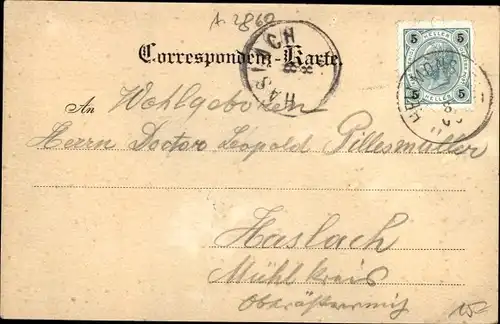 A. 2862
Correspondenz-Karte.
HASLACH
5 HELLER 5
5 HELLER 5
An Wohlgeboren
Herrn Doctor Leopold Pillesmüller
Haslach
Mühlkreis
Oberösterreich